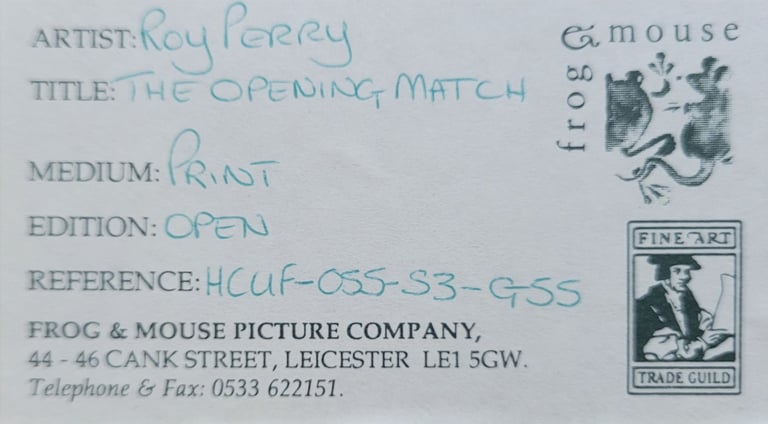 ARTIST: Roy PERRY
TITLE: THE OPENING MATCH
MEDIUM: PRINT
EDITION: OPEN
REFERENCE: HCUF-055-S3-G55
FROG & MOUSE PICTURE COMPANY,
44 - 46 CANK STREET, LEICESTER LE1 5GW.
Telephone & Fax: 0533 622151.
frog & mouse
FINE ART
TRADE GUILD